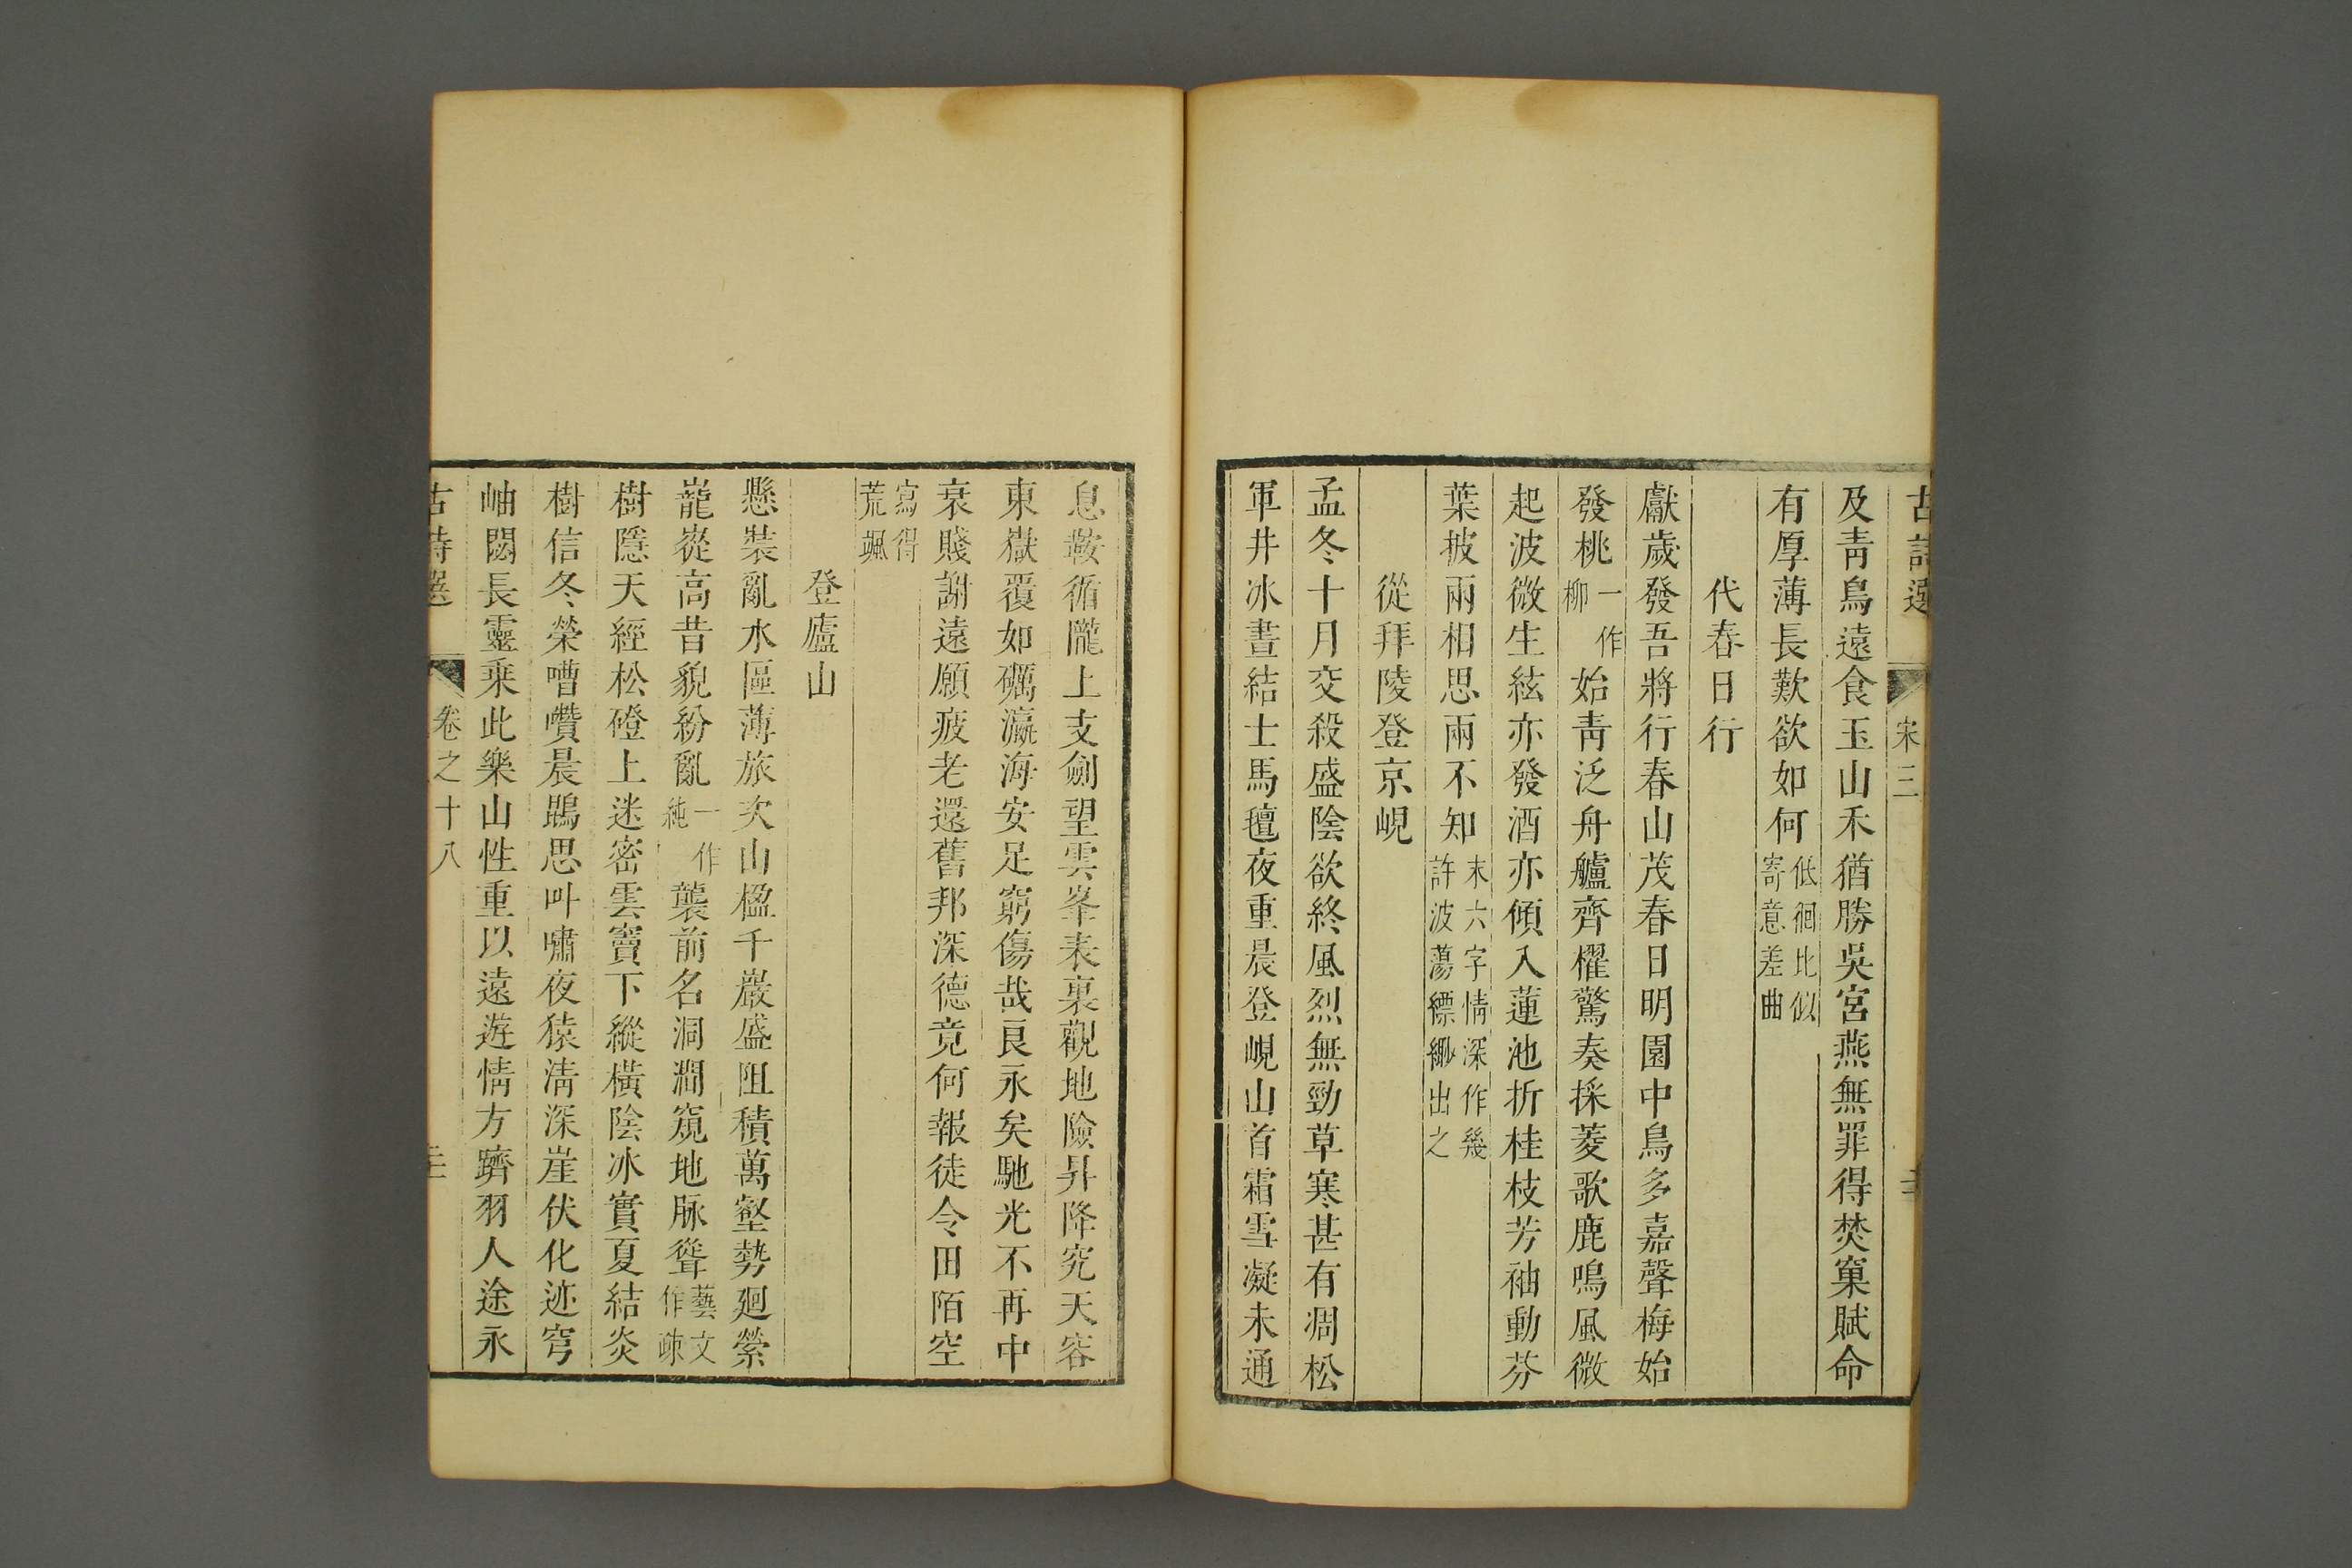 古詩選 宋三
及靑鳥遠食玉山禾猶勝吳宮燕無罪得焚窠賦命
有厚薄長歎欲如何低徊比似寄意差曲
代春日行
獻歲發吾將行春山茂春日明園中鳥多嘉聲梅始
發桃一作柳始靑泛舟艫齊櫂驚奏採菱歌鹿鳴風微
起波微生絃亦發酒亦傾入蓮池折桂枝芳袖動芬
葉披兩相思兩不知末六字情深作幾許波蕩縹緲出之
從拜陵登京峴
孟冬十月交殺盛陰欲終風烈無勁草寒甚有凋松
軍井冰晝結士馬氊夜重晨登峴山首霜雪凝未通
息鞍循隴上支劍望雲峯表裏觀地險昇降究天容
東嶽覆如礪瀛海安足窮傷哉良永矣馳光不再中
衰賤謝遠願疲老還舊邦深德竟何報徒令田陌空
寫得荒颯
登廬山
懸裝亂水區薄旅次山楹千巖盛阻積萬壑勢廻縈
巃嵸高昔貌紛亂一作純襲前名洞澗窺地脉聳藝文作疎
樹隱天經松磴上迷密雲竇下縱橫陰冰實夏結炎
樹信冬榮嘈囋晨鵾思叫嘯夜猿淸深崖伏化迹穹
岫閟長靈乗此樂山性重以遠遊情方躋羽人途永
古詩選 卷之十八